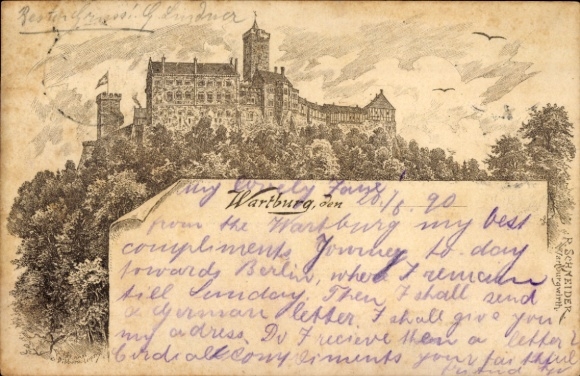 Besten Gruss! G. Lindner
My lovely
Wartburg, den 20./6. 90
from the Wartburg my best
compliments. Journey to-day
towards Berlin, where I remain
till Sunday. Then I shall send
a German letter. I shall give you
my adress. Do I recieve then a letter?
Cordial compliments your faithful
friend
R. SCHNEIDER
Wartburgwirth